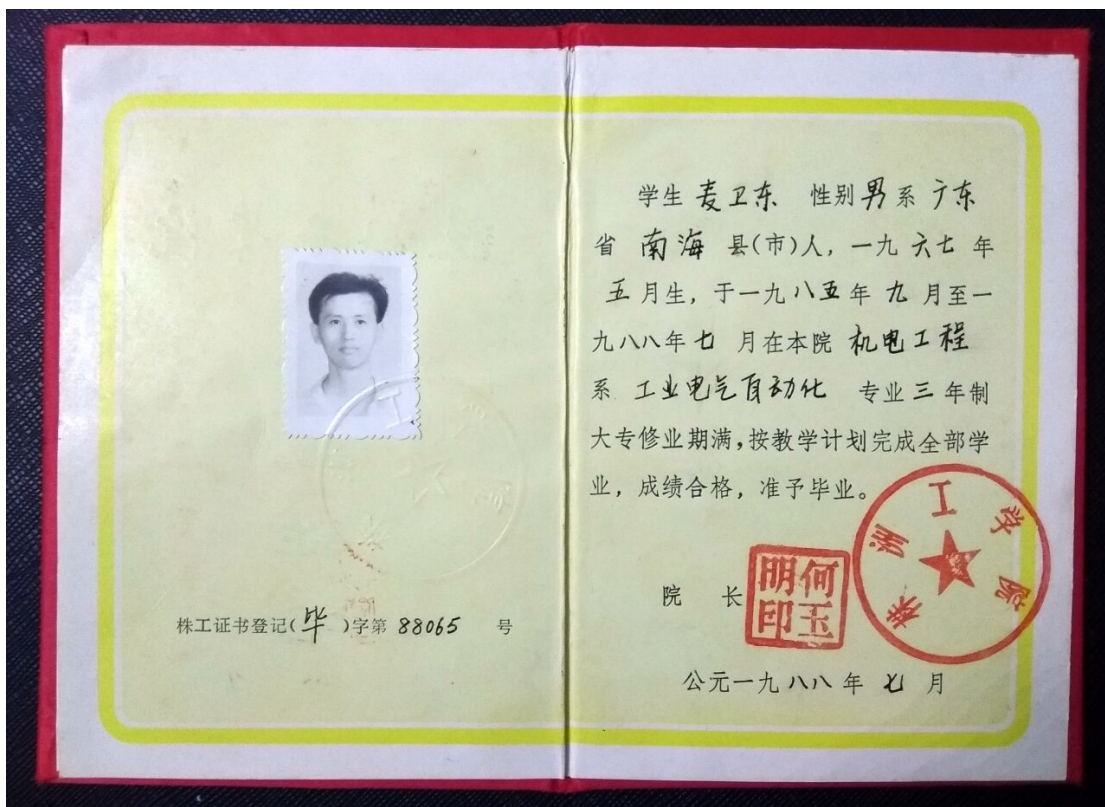 株工证书登记(毕)字第 88065 号
学生 麦卫东 性别 男 系 广东
省 南海 县(市)人, 一九 六七 年
五 月生, 于一九 八五 年 九 月至一
九八八年 七 月在本院 机电工程
系 工业电气自动化 专业 三 年制
大专修业期满,按教学计划完成全部学
业, 成绩合格, 准予毕业。
院 长
何玉明印
株洲工学院
公元一九 八八 年 七 月